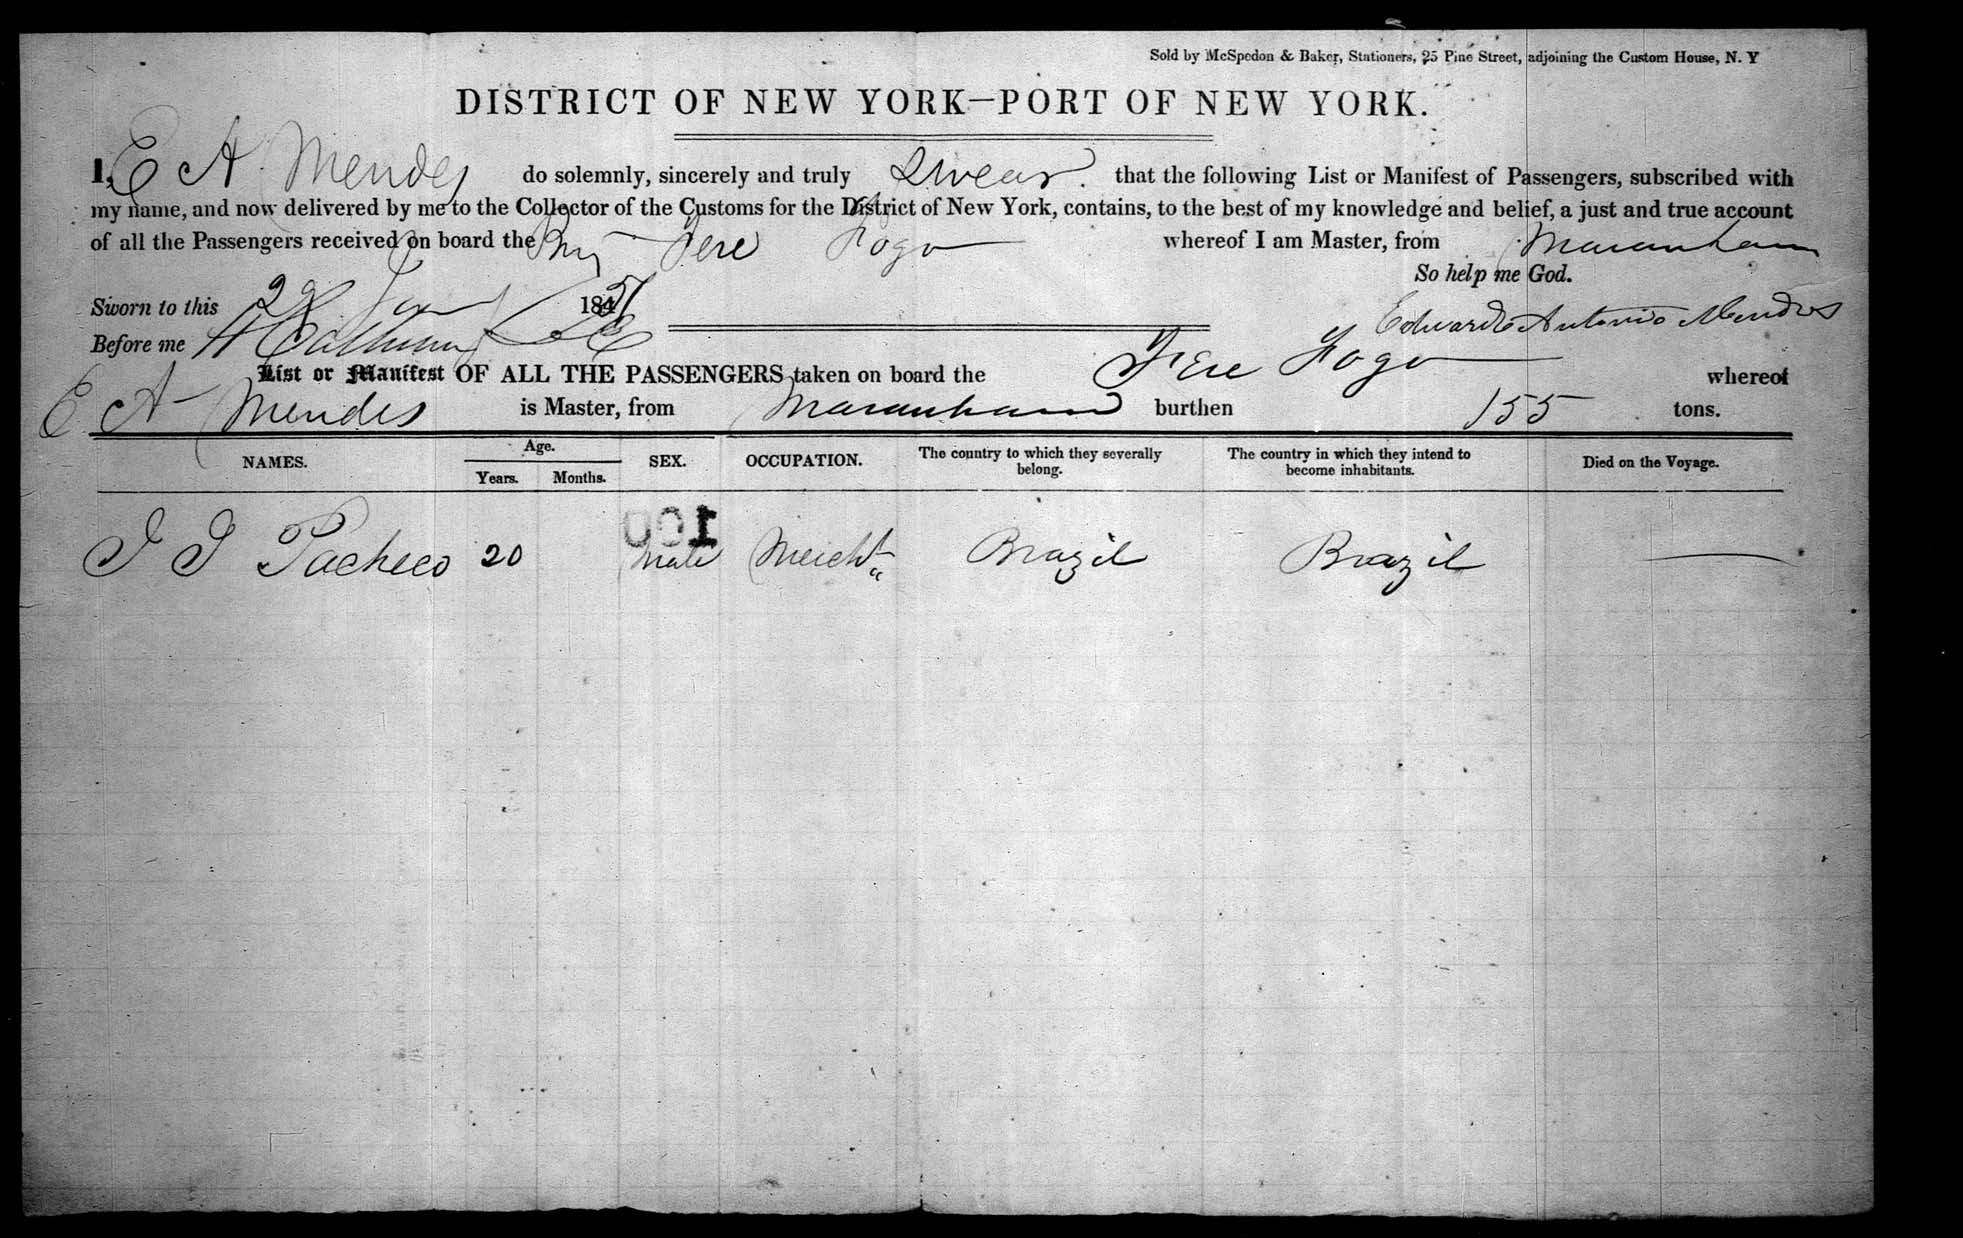 Sold by McSpedon & Baker, Stationers, 25 Pine Street, adjoining the Custom House, N. Y
DISTRICT OF NEW YORK—PORT OF NEW YORK.
I, E A Mendes do solemnly, sincerely and truly Swear that the following List or Manifest of Passengers, subscribed with
my name, and now delivered by me to the Collector of the Customs for the District of New York, contains, to the best of my knowledge and belief, a just and true account
of all the Passengers received on board the Brig Fogo whereof I am Master, from Maranham
So help me God.
Sworn to this 22 Jany 1851
Eduardo Antonio Mendes
Before me
List or Manifest OF ALL THE PASSENGERS taken on board the Fogo whereof
E A Mendes is Master, from Maranham burthen 155 tons.
NAMES. Age. Years. Months. SEX. OCCUPATION. The country to which they severally belong. The country in which they intend to become inhabitants. Died on the Voyage.
100
J J Pacheco 20 Male Mercht Brazil Brazil —